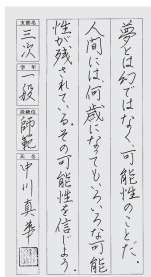 夢とは幻ではなく、可能性のことだ。
人間には、何歳になってもいろいろな可能
性が残されている。その可能性を信じよう。
支部名 三次
学年 一般
段級位 師範
氏名 中川真華